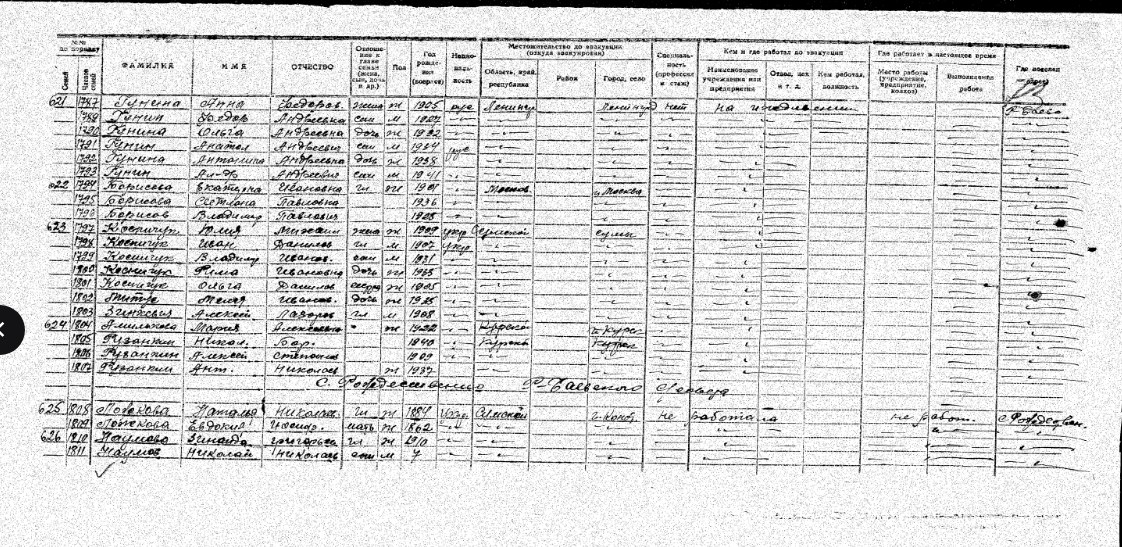 №№ по порядку ФАМИЛИЯ ИМЯ ОТЧЕСТВО Отношение к главе семьи (жена, сын, дочь и др.) Пол Год рождения (возраст) Национальность Местожительство до эвакуации (откуда эвакуирован) Специальность (профессия и стаж) Кем и где работал до эвакуации Где работает в настоящее время Где поселен
Семей Членов семей Область, край, республика Район Город, село Наименование учреждения или предприятия Отдел, цех и т. д. Кем работал, должность Место работы (учреждение, предприятие, колхоз) Выполняемая работа
621 1787 Гунина Анна Федоров. жена ж 1905 рус Ленингр Ленинград нет на иждевении
1789 Гунин Федор Андреевич сын м 1927
1790 Гунина Ольга Андреевна дочь ж 1932
1791 Гунин Анатол Андреевич сын м 1934 рус
1792 Гунина Антонина Андреевна дочь ж 1938
1793 Гунин Ал-др Андреевич сын м 1941
622 1794 Борисова Екатерина Ивановна гл ж 1901 Москов. г. Москва
1795 Борисова Светлана Павловна 1936
1796 Борисов Владимир Павлович 1928
623 1797 Косничук Юлия Михаил жена ж 1909 укр Сумской сумы
1798 Косничук Иван Данилов гл м 1907 укр
1799 Косничук Владимир Иванов. сын м 1931
1800 Косничук Рима Ивановна дочь ж 1935
1801 Косничук Ольга Данилов сестра ж 1905
1802 Иванов. дочь ж 1925
1803 Зинкевич Алексей Лазоров гл м 1908
624 1804 Мария Алексеевна ж 1922 Курской г. Курск
1805 Рузанкин Никол. Бор. 1940 Курской Курск
1806 Рузанкин Алексей Степанов 1909
1807 Рузанкин Ант. Николаев ж 1937
С. Рождественно Р-Баевского Сельсовета
625 1808 Ложкова Наталья Николаев. гл. ж 1884 г. Конот. не работала не работ. с Рождествен.
1809 Ложкова Евдокия мать ж 1862
626 1810 Наумова Зинаида Григорьев гл. ж 1910
1811 Наумов Николай Николаев сын м 7